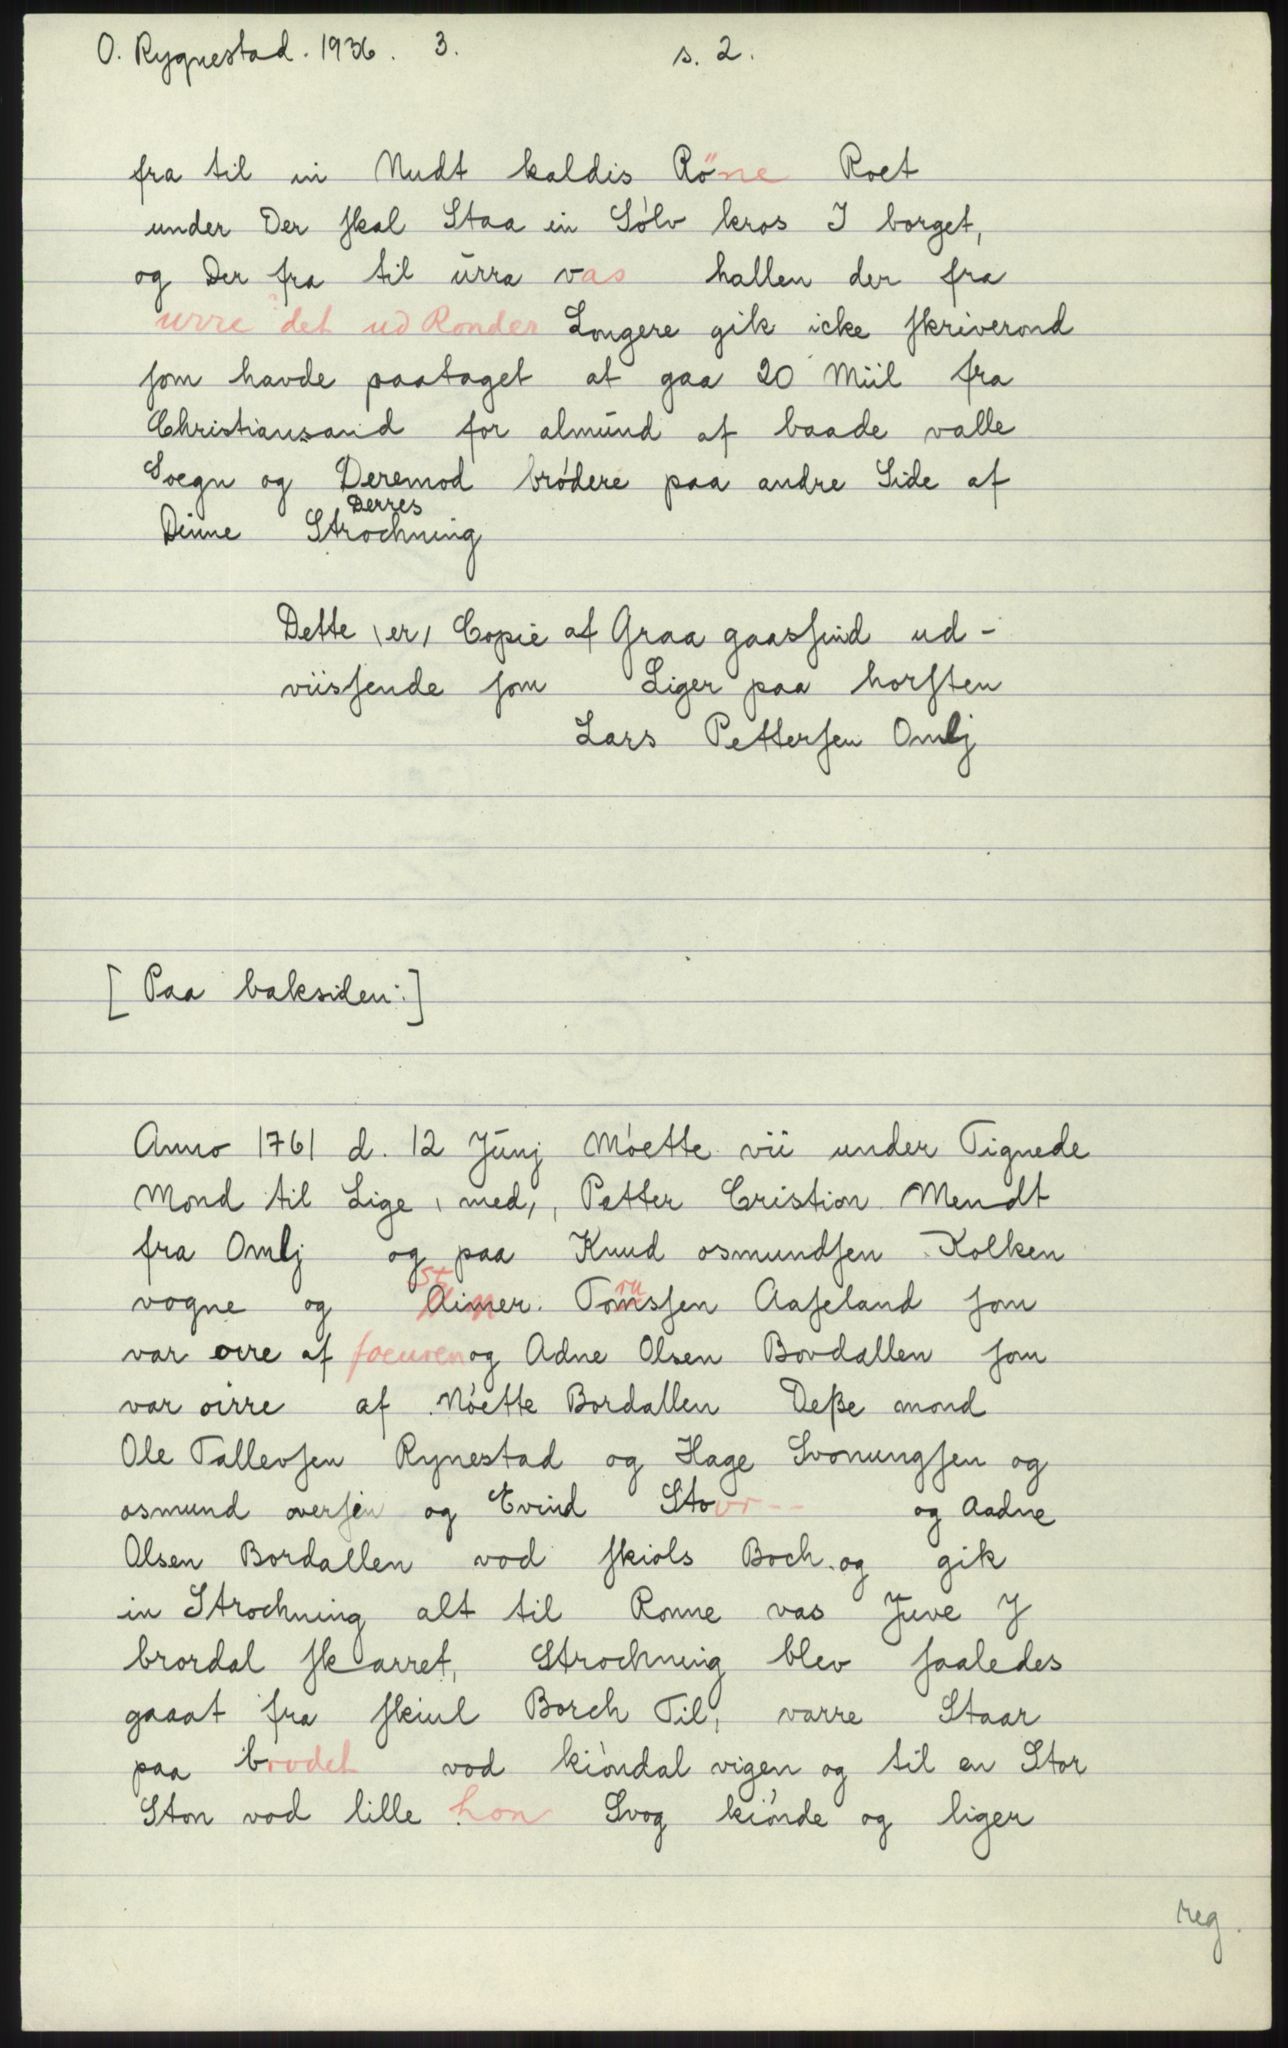 O. Rygnestad. 1936. 3. s. 2.
fra til in Nudt kaldis Röne Roet
under Der skal Staa ein Sólv kros I borget,
og Der fra til urra vas hallen der fra
urre det ud Ronder Longere gik icke skriverond
som havde paataget at gaa 20 Miil fra
Christiansand for almund af baade valle
Soegn og Deremod bródere paa andre Side af
Derres
Dinne Strochning
Dette (er) Copie af Graa gaassind ud-
viissende som Liger paa horsten
Lars Pettersen Omlj
[Paa baksiden:]
Anno 1761 d. 12 Junj Móette vii under Tignede
Mond til Lige, med,, Petter Cristion Mendt
fra Omlj og paa Knud osmundsen Kolken
vogne og Aimer. Tomssen Aaseland som
var oire af focuren og Adne Olsen Bordallen som
var oirre af Nóette Bordallen Deße mond
Ole Tallevsen Rynestad og Hage Svonungsen og
osmund oversen og Evind Stovr-- og Aadne
Olsen Bordallen vod skiols Boch. og gik
in Strochning alt til Ronne vas Juve I
brordal skarret, Strochning blev saaledes
gaaat fra skiul Borch Til, varre Staar
paa brodet vod kióndal vigen og til en Stor
Ston vod lille hon Svog kiónde og liger
reg.